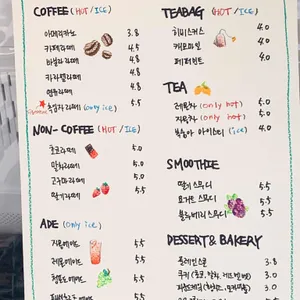 COFFEE (HOT / ICE)
아메리카노 3.8
카페라떼 4.5
바닐라라떼 4.8
카라멜라떼 4.8
연유라떼 4.8
(only ice) 5.5
NON-COFFEE (HOT / ICE)
초코라떼 5.0
말차라떼 5.0
고구마라떼 5.0
딸기라떼 5.5
ADE (only ice)
자몽에이드 5.5
레몬에이드 5.5
청포도에이드 5.5
5.5
TEABAG (HOT / ICE)
히비스커스 4.0
캐모마일 4.0
페퍼민트 4.0
TEA
레몬차 (only hot) 5.0
자몽차 (only hot) 5.0
복숭아 아이스티 (ice) 4.0
SMOOTHIE
딸기 스무디 5.5
요거트 스무디 5.5
블루베리 스무디 5.5
DESSERT & BAKERY
플레인스콘 3.8
쿠키 3.0